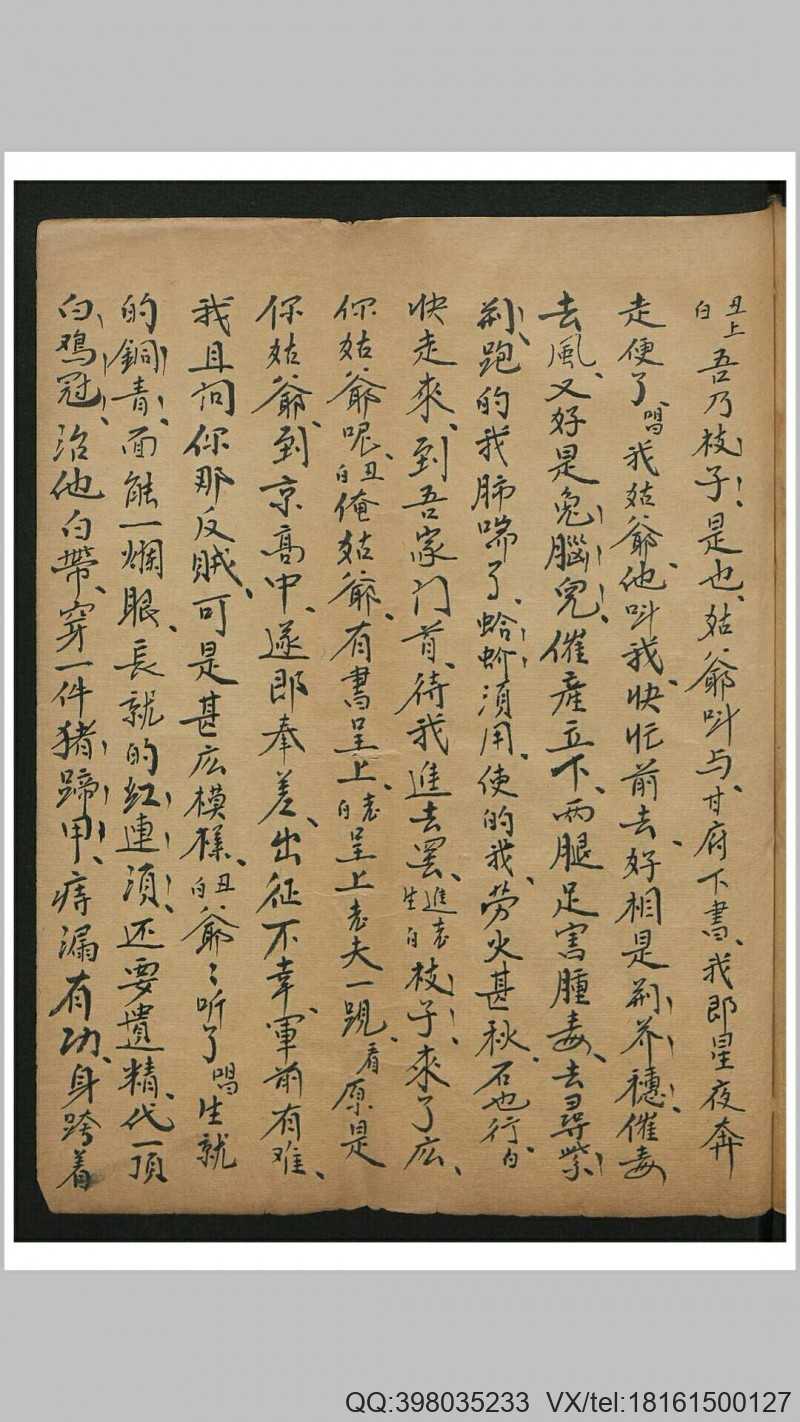 丑上白吾乃枝子是也、姑爺呌与、甘府下書、我即星夜奔
走便了、唱我姑爺、他呌我、快忙前去、好相是荆芥穗、催毒
去風、又好是兔腦児、催産立下、两腿足害腫毒、去尋紫
荆、跑的我肺喘了、蛤蚧湏用、使的我、劳火甚秋、石也行、白
快走來、到吾家门首、待我進去罢、進老生白枝子、來了広、
你姑爺呢、丑白俺姑爺、有書呈上、老白呈上老夫一覌、看原是
你姑爺、到京高中、遂即奉差、出征不幸、軍前有难、
我且问你那反賊、可是甚広模樣、丑白爺〻听了唱生就
的銅青、面能一爛眼、長就的红連湏、还要遺精、代一頂
白鸡冠、治他白帶、穿一件猪蹄甲、痔漏有功、身跨着
QQ:398035233 VX/tel:18161500127